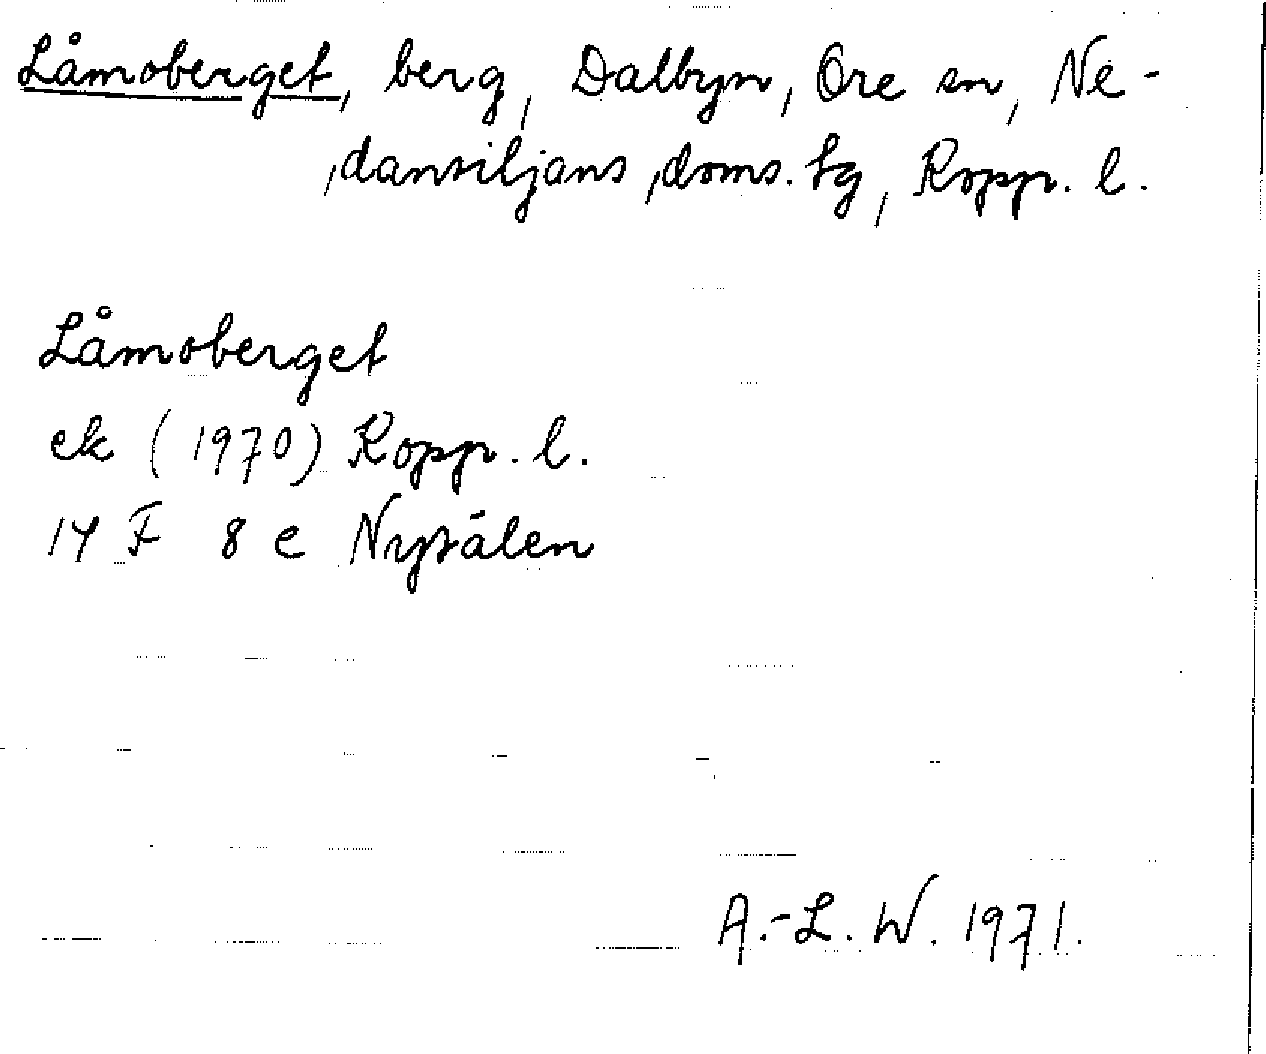 Låmoberget, berg, Dalbyn, Ore sn, Ne-
dansiljans doms. tg, Kopp. l.
Låmoberget
ek (1970) Kopp. l.
14 F 8 e Nysälen
A.-L. W. 1971.